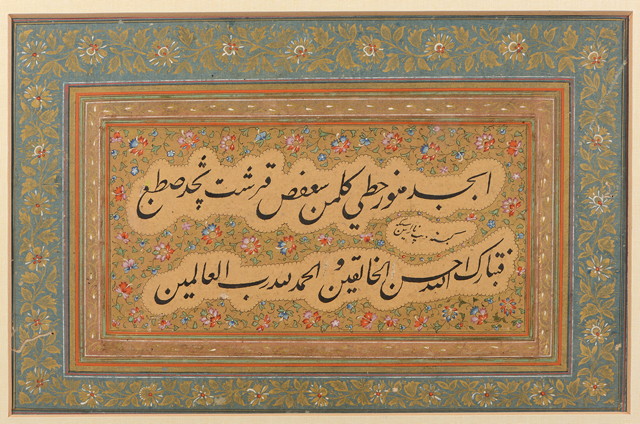 ابجد هوز حطي كلمن سعفص قرشت ثخذ ضظغ
فتبارك الله احسن الخالقين و الحمد لله رب العالمين